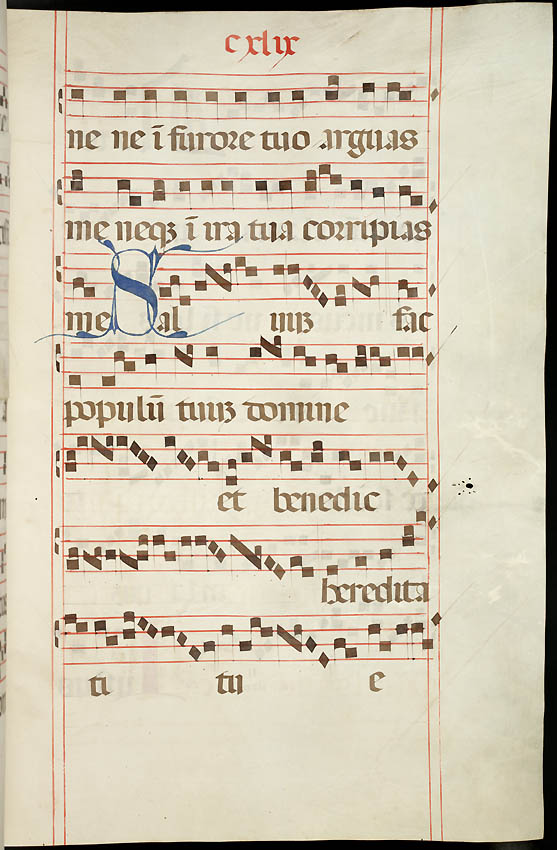 cxlix
ne ne ī furore tuo arguas
me neqꝫ ī ira tua corripias
me Sal uū fac
populū tuū domine
et benedic
heredita
ti tu e